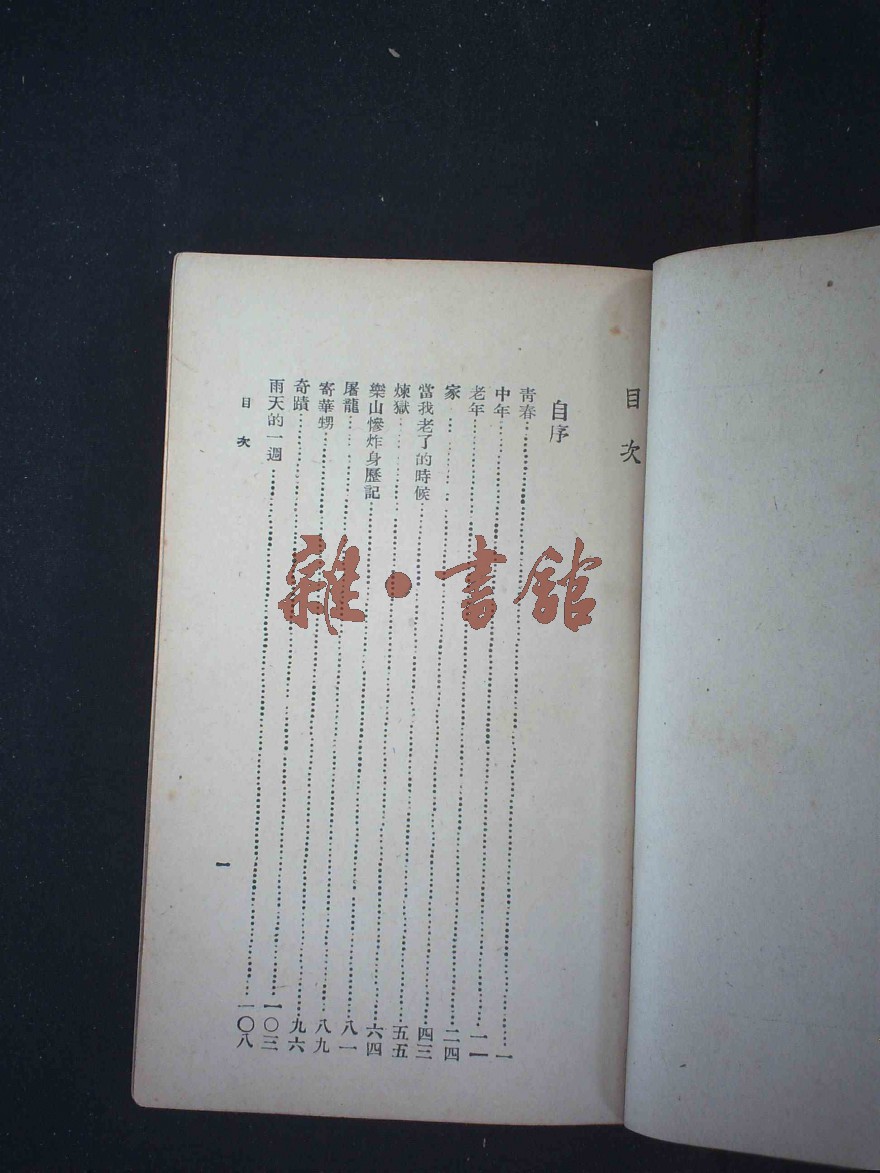 目次
自序
青春……一
中年……一一
老年……二四
家……四三
當我老了的時候……五五
煉獄……六四
樂山慘炸身歷記……八一
屠龍……八九
寄華甥……九六
奇蹟……一〇三
雨天的一週……一〇八
目次
一
雜·書館